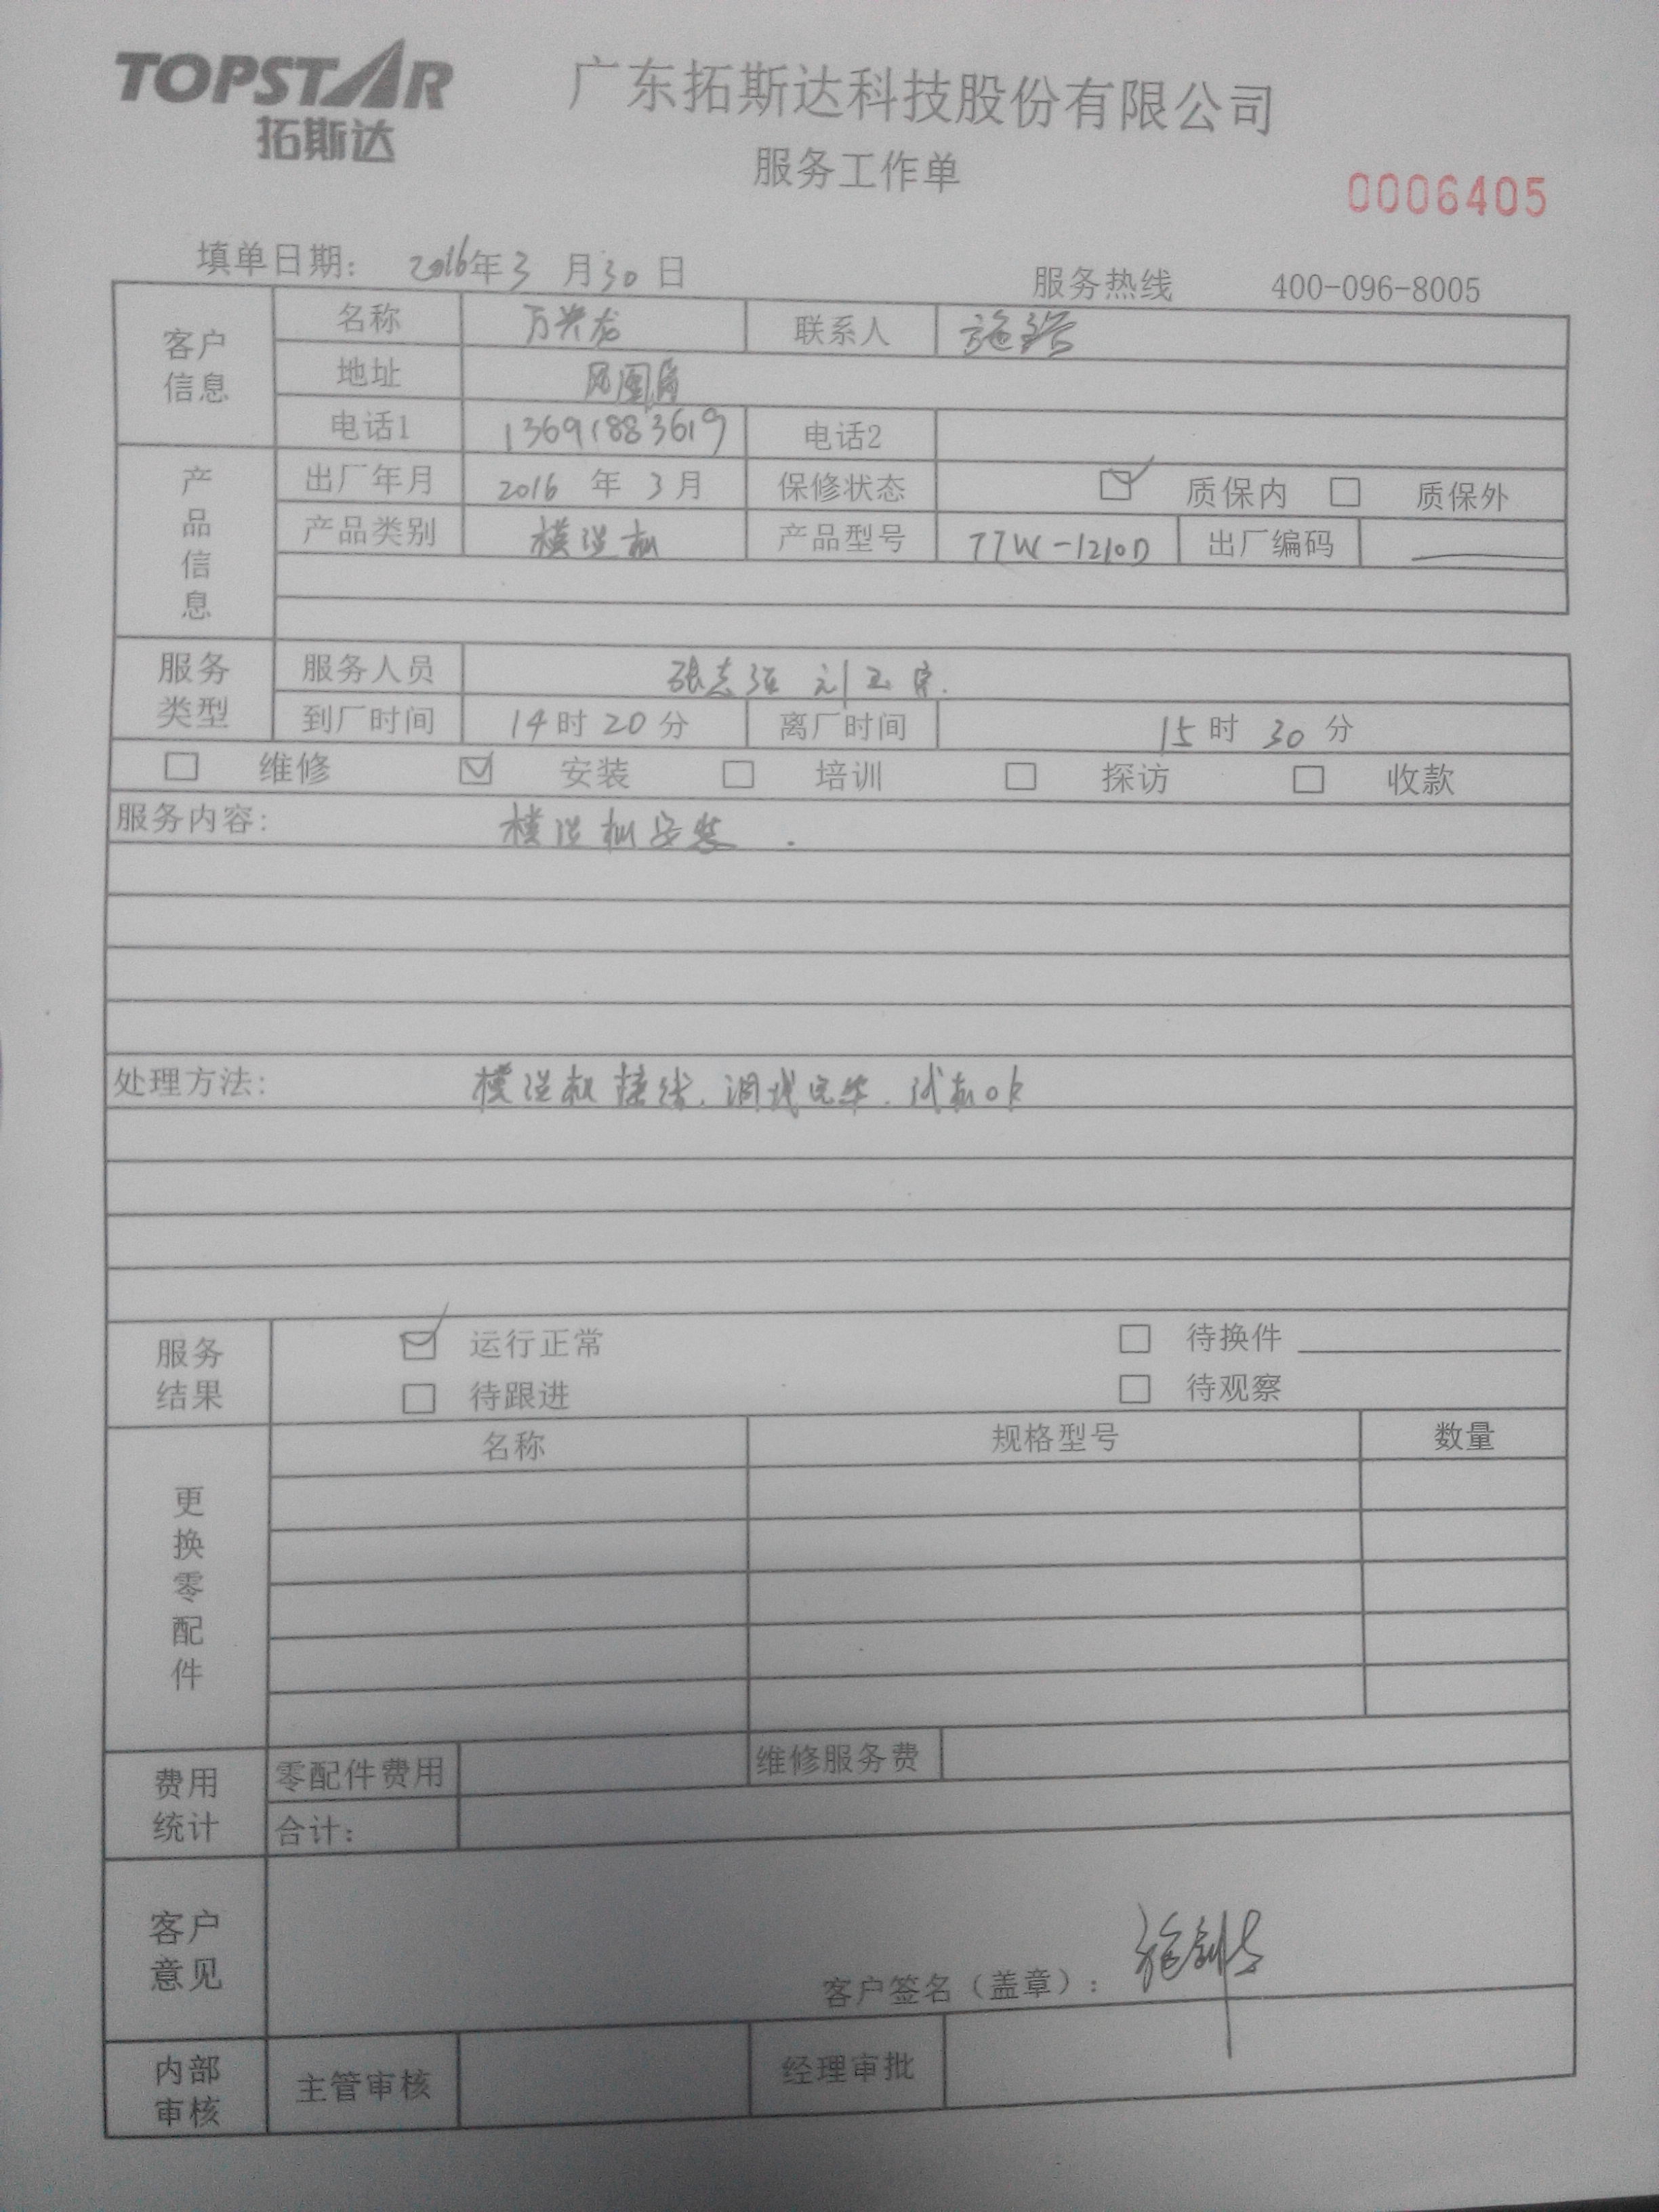 TOPSTAR
拓斯达
广东拓斯达科技股份有限公司
服务工作单
0006405
填单日期： 2016年3月30日
服务热线 400-096-8005
客户信息
名称 万兴龙 联系人 施
地址 凤凰
电话1 13691883619 电话2
产品信息
出厂年月 2016 年 3 月 保修状态 质保内 质保外
产品类别 模温机 产品型号 TTW-1210D 出厂编码
服务类型
服务人员 张志强 刘玉
到厂时间 14时20分 离厂时间 15时30分
维修 安装 培训 探访 收款
服务内容： 模温机安装.
处理方法： 模温机接线. 调试完毕. 试机ok
服务结果
运行正常 待换件
待跟进 待观察
更换零配件
名称 规格型号 数量
费用统计
零配件费用 维修服务费
合计：
客户意见
客户签名（盖章）： 施
内部审核
主管审核 经理审批